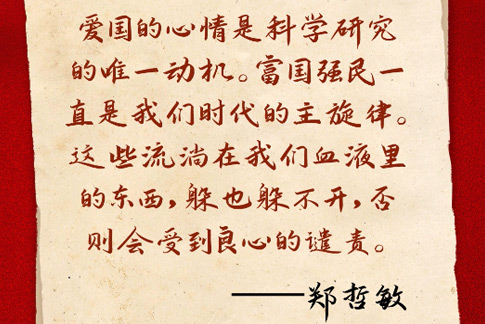 爱国的心情是科学研究
的唯一动机。富国强民一
直是我们时代的主旋律。
这些流淌在我们血液里
的东西,躲也躲不开,否
则会受到良心的谴责。
——郑哲敏